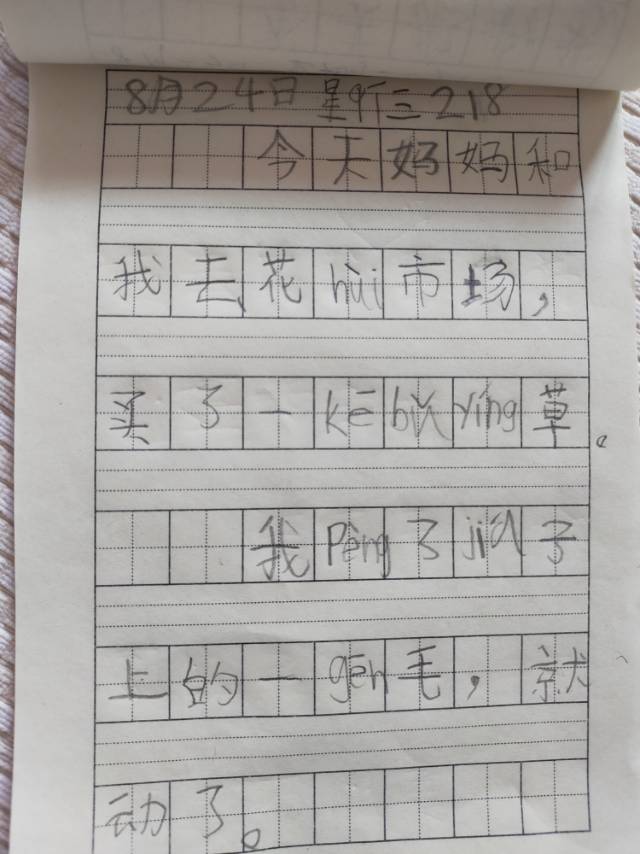 8月24日 星期三 218
今天妈妈和
我去花huì市场,
买了一kē bǔ yíng草。
我Pèng了jiā子
上的一gēn毛,就
动了。